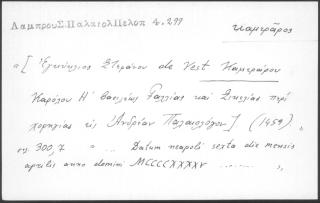 Λάμπρου Σ. Παλαιολ Πελοπ 4.299
καμεράρος
« [ Ἐγκύκλιος Στεφάνου de Vest Καμεραρου
Καρόλου Η' βασιλέως Γαλλίας καὶ Σικελίας περὶ
χορηγίας εἰς Ἀνδρέαν Παλαιολόγον ] . (1459) ,
σ. 300,7 « ... Datum neapoli sexta die mensis
aprilis anno domini MCCCCXXXXV ...... »,